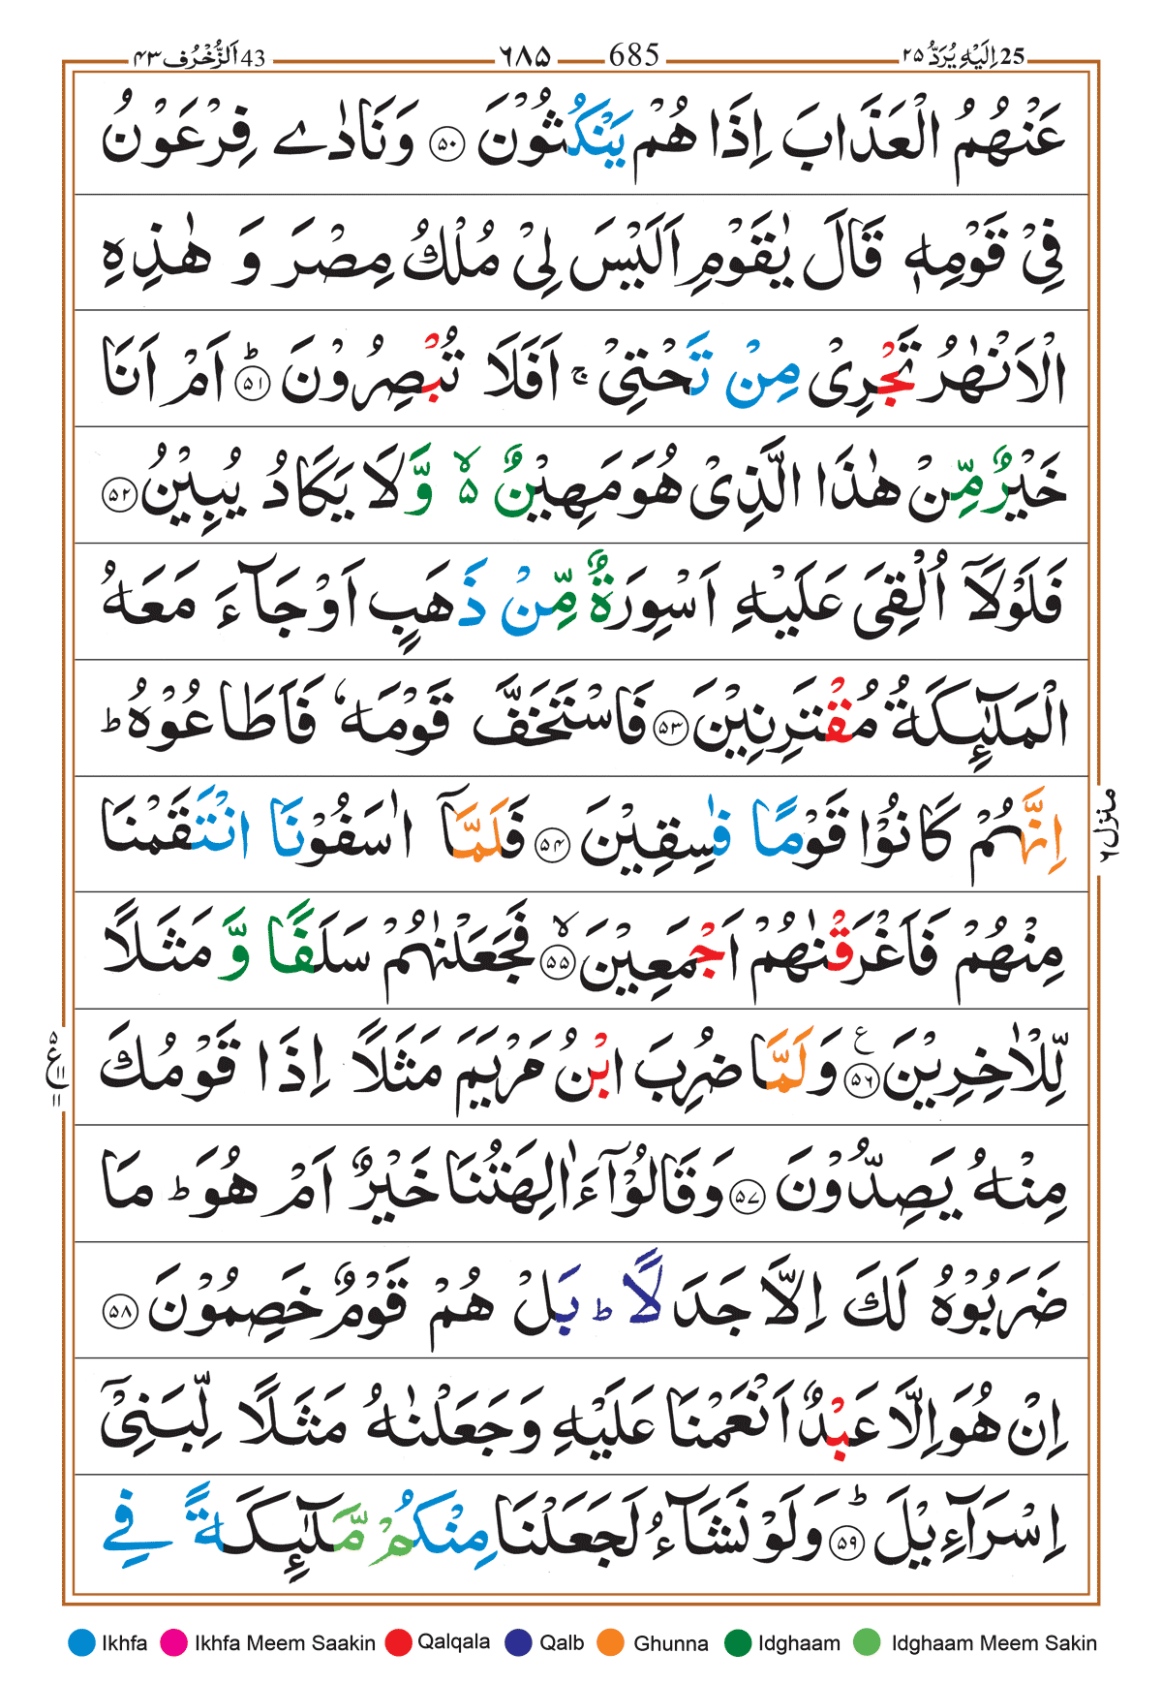 25 اِلَيْهِ يُرَدُّ ۲۵ 685 ٦٨٥ 43 اَلزُّخْرُف ۴۳
عَنْهُمُ الْعَذَابَ اِذَا هُمْ يَنْكُثُوْنَ ﴿۵۰﴾ وَنَادٰے فِرْعَوْنُ
فِيْ قَوْمِهٖ قَالَ يٰقَوْمِ اَلَيْسَ لِيْ مُلْكُ مِصْرَ وَ هٰذِهِ
الْاَنْهٰرُ تَجْرِيْ مِنْ تَحْتِيْ ۚ اَفَلَا تُبْصِرُوْنَ ﴿۵۱﴾ؕ اَمْ اَنَا
خَيْرٌ مِّنْ هٰذَا الَّذِيْ هُوَ مَهِيْنٌ ۙ۬ وَّلَا يَكَادُ يُبِيْنُ ﴿۵۲﴾
فَلَوْلَاۤ اُلْقِيَ عَلَيْهِ اَسْوِرَةٌ مِّنْ ذَهَبٍ اَوْ جَآءَ مَعَهُ
الْمَلٰٓئِكَةُ مُقْتَرِنِيْنَ ﴿۵۳﴾ فَاسْتَخَفَّ قَوْمَهٗ فَاَطَاعُوْهُ ؕ
اِنَّهُمْ كَانُوْا قَوْمًا فٰسِقِيْنَ ﴿۵۴﴾ فَلَمَّاۤ اٰسَفُوْنَا انْتَقَمْنَا
مِنْهُمْ فَاَغْرَقْنٰهُمْ اَجْمَعِيْنَ ﴿۵۵﴾ۙ فَجَعَلْنٰهُمْ سَلَفًا وَّ مَثَلًا
لِّلْاٰخِرِيْنَ ﴿۵۶﴾ع وَلَمَّا ضُرِبَ ابْنُ مَرْيَمَ مَثَلًا اِذَا قَوْمُكَ
مِنْهُ يَصِدُّوْنَ ﴿۵۷﴾ وَقَالُوْۤا ءَاٰلِهَتُنَا خَيْرٌ اَمْ هُوَ ؕ مَا
ضَرَبُوْهُ لَكَ اِلَّا جَدَلًا ؕ بَلْ هُمْ قَوْمٌ خَصِمُوْنَ ﴿۵۸﴾
اِنْ هُوَ اِلَّا عَبْدٌ اَنْعَمْنَا عَلَيْهِ وَجَعَلْنٰهُ مَثَلًا لِّبَنِيْۤ
اِسْرَآءِيْلَ ﴿۵۹﴾ؕ وَلَوْ نَشَآءُ لَجَعَلْنَا مِنْكُمْ مَّلٰٓئِكَةً فِي
منزل ٦
Ikhfa Ikhfa Meem Saakin Qalqala Qalb Ghunna Idghaam Idghaam Meem Sakin